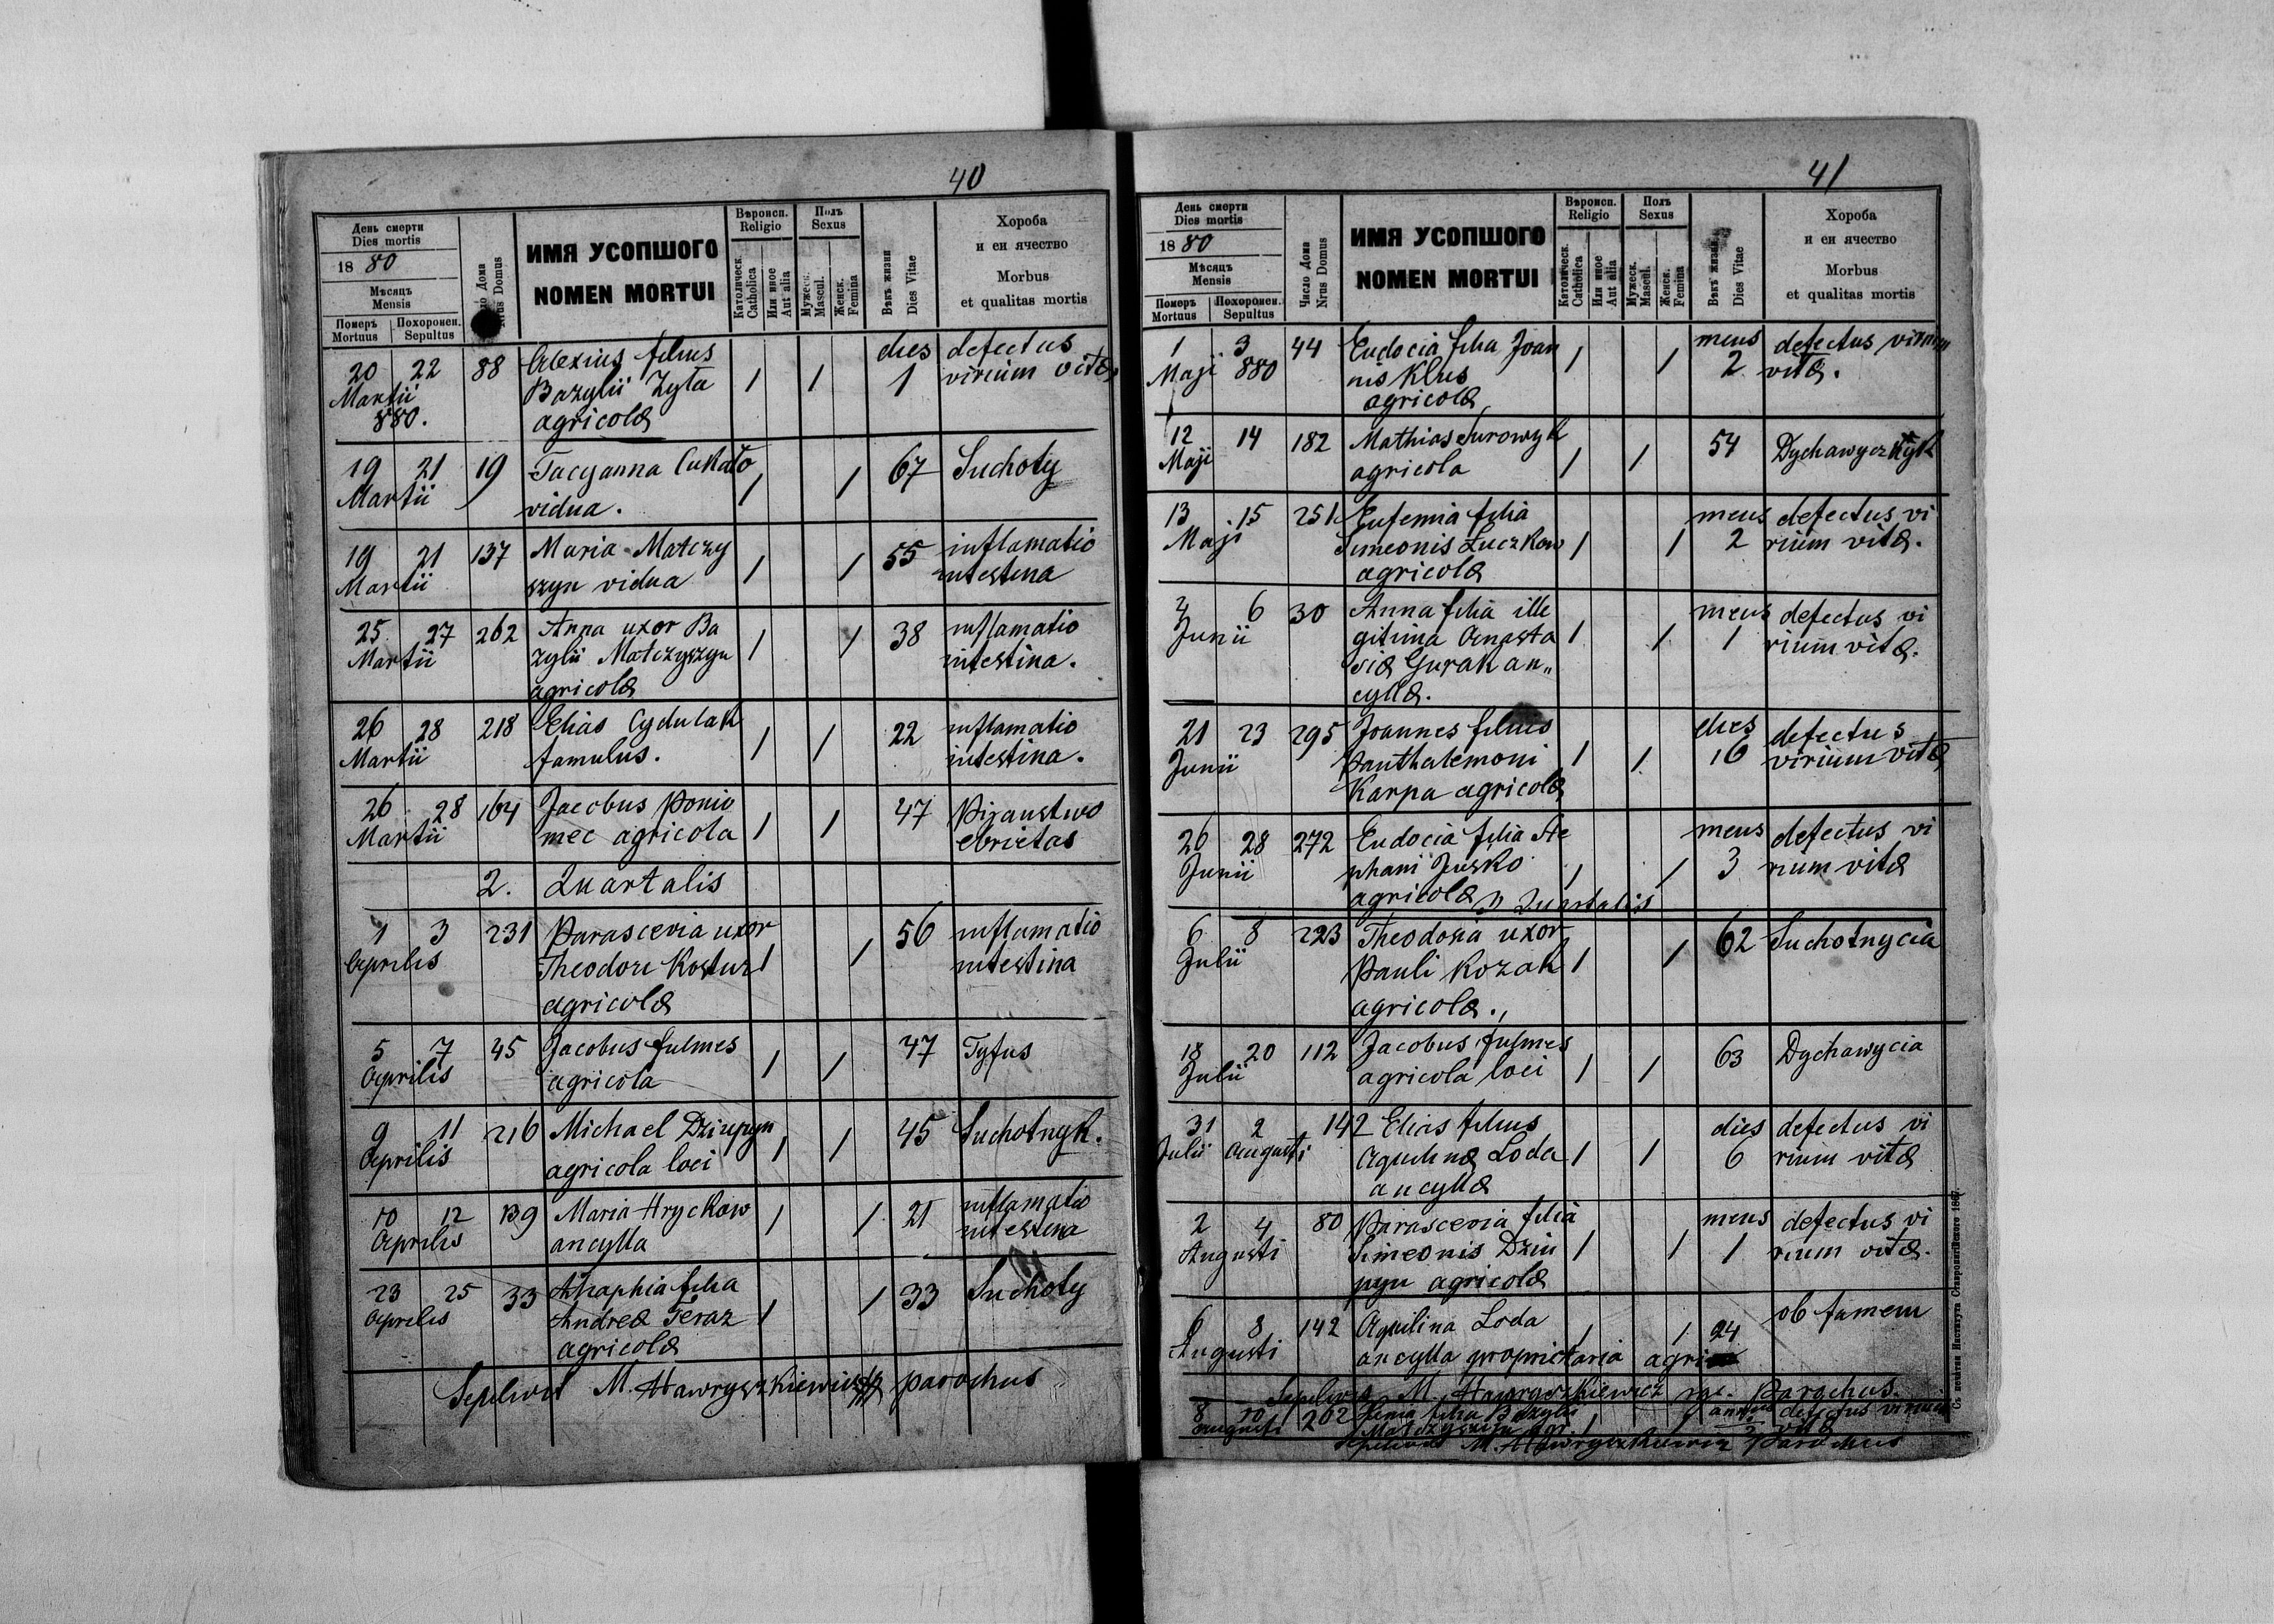 40
День смерти
Dies mortis
18 80
Мѣсяцъ
Mensis
Померъ Mortuus
Похоронен. Sepultus
Nrus Domus
ИМЯ УСОПШОГО
NOMEN MORTUI
Вѣроисп.
Religio
Католическ. Catholica
Или иное Aut alia
Полъ
Sexus
Мужеск. Mascul.
Женск. Femina
Вѣкъ жизни
Dies Vitae
Хороба
и еи ячество
Morbus
et qualitas mortis
20 22 88 Alexius filius dies defectus
Martii Bazylii Zyła 1 1 1 virium vitæ
880. agricolæ
19 21 19 Tacyanna Cukało 1 1 67 Suchoty
Martii vidua.
19 21 137 Maria Matczy 1 1 55 inflamatio
Martii szyn vidua intestina
25 27 262 Anna uxor Ba 1 1 38 inflamatio
Martii zylii Matczyszyn intestina.
agricolæ
26 28 218 Elias Cydulak 1 1 22 inflamatio
Martii famulus. intestina.
26 28 164 Jacobus Ponio 1 1 47 Pijanstwo
Martii mec agricola ebrietas
2. Quartalis
1 3 231 Parascevia uxor 56 inflamatio
Aprilis Theodori Kostur 1 1 intestina
agricolæ
5 7 45 Jacobus Julmes 1 1 47 Tyfus
Aprilis agricola
9 11 216 Michael Dziupyn 1 1 45 Suchotnyk.
Aprilis agricola loci
10 12 139 Maria Hryckow 1 1 21 inflamatio
Aprilis ancylla intestina
23 25 33 Ahaphia filia 1 1 33 Suchoty
Aprilis Andreæ Teraz
agricolæ
Sepelivit M. Hawryszkiewicz parochus
41
День смерти
Dies mortis
18 80
Мѣсяцъ
Mensis
Померъ Mortuus
Похоронен. Sepultus
Число Дома
Nrus Domus
ИМЯ УСОПШОГО
NOMEN MORTUI
Вѣроисп.
Religio
Католическ. Catholica
Или иное Aut alia
Полъ
Sexus
Мужеск. Mascul.
Женск. Femina
Вѣкъ жизни
Dies Vitae
Хороба
и еи ячество
Morbus
et qualitas mortis
1 3 44 Eudocia filia Joan 1 1 mens defectus virium
Maji 880 nis Klus 2 vitæ.
agricolæ
12 14 182 Mathias Surowyk 1 1 54 Dychawyczkyk
Maji agricola
13 15 251 Eufemia filia mens defectus vi
Maji Simeonis Łuczkow 1 1 2 rium vitæ.
agricolæ
4 6 30 Anna filia ille mens defectus vi
Junii gitima Anasta 1 1 1 rium vitæ.
siæ Gurak an„
cyllæ.
21 23 295 Joannes filius dies defectus
Junii Panthalemoni 1 1 16 virium vitæ
Karpa agricolæ
26 28 272 Eudocia filia Ste mens defectus vi
Junii phani Jusko 1 1 3 rium vitæ
agricolæ 3 Quartalis
6 8 223 Theodosia uxor 62 Suchotnycia
Julii Pauli Kozak 1 1
agricolæ.,
18 20 112 Jacobus Julmes 63 Dychawycia
Julii agricola loci 1 1
31 2 142 Elias filius dies defectus vi
Julii Augusti Aquilinæ Loda 1 1 6 rium vitæ
ancyllæ
2 4 80 Parascevia filia mens defectus vi
Augusti Simeonis Dziu 1 1 1 rium vitæ.
pyn agricolæ
6 8 142 Aquilina Loda 1 1 24 ob famem
Augusti ancylla proprietaria agri
Sepelivit M. Hawryszkiewicz Parochus.
8 10 262 filia Bazylii 1 1 defectus virium
Augusti Matczyszyn agr. 2 vitæ
Sepelivit M. Hawryszkiewicz Parochus
Съ печатни Института Ставропигійского 1867.